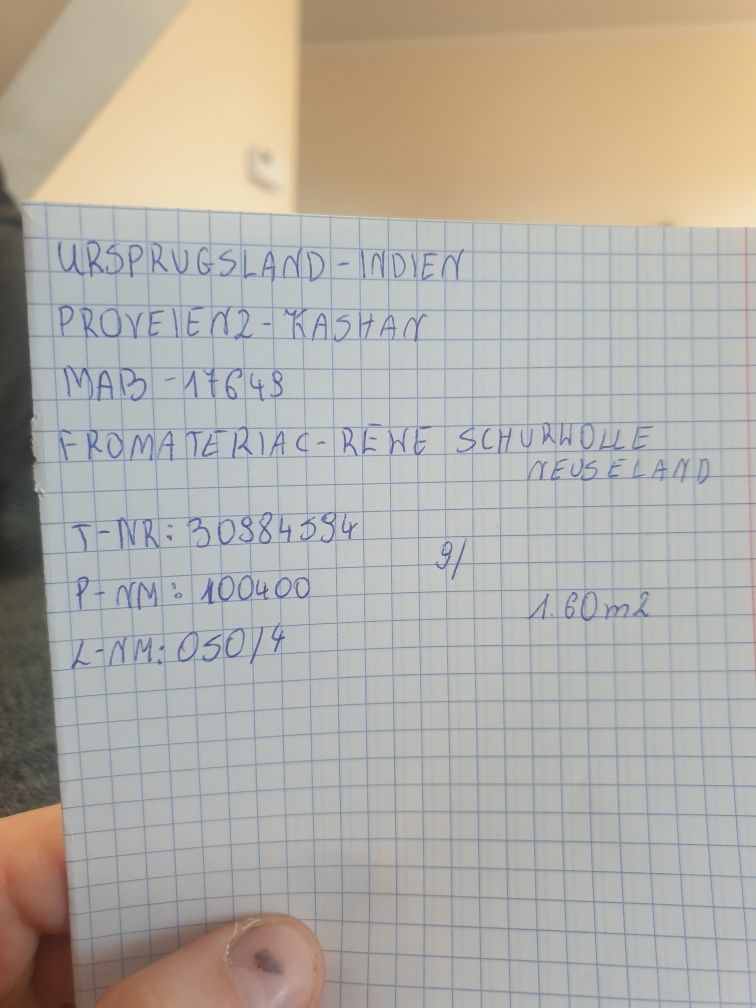 URSPRUGSLAND - INDIEN
PROVEIENZ - KASHAN
MAB - 17649
FROMATERIAL - REWE SCHURWOLLE
NEUSELAND
T-NR: 30984594
9/
P-NM: 100400
1.60m2
L-NM: 050/4